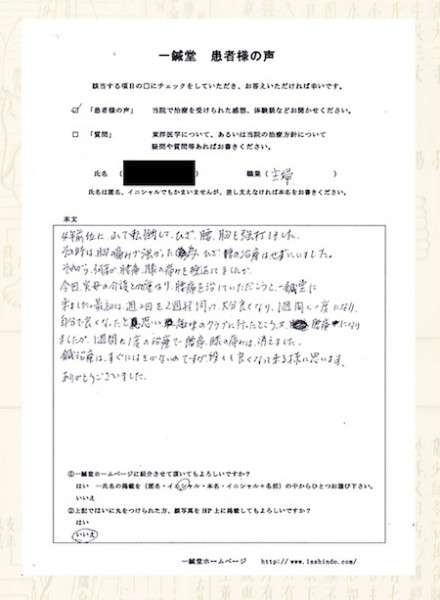 一鍼堂 患者様の声
該当する項目の□にチェックをしていただき、お答えいただければ幸いです。
☑ 「患者様の声」 当院で治療を受けられた感想、体験談などお聞かせください。
□ 「質問」 東洋医学について、あるいは当院の治療方針について
疑問や質問等あればお書きください。
氏名 ( 職業 ( 主婦 )
氏名は匿名、イニシャルでもかまいませんが、差し支えなければ本名をお書きください。
本文
4年前位に、して転倒して、ひざ、腰、胸を強打しました。
当時は、胸の痛みが強かった為、ひざ、腰の治療はせずにいました。
それから、何年か腰痛、膝の痛みを極端にましたが、
今回、実母の介護とが重なり、腰痛を治していただこうと、一鍼堂に
来ました。最初は、週2回を2週程伺って、大分良くなり、1週間に一度になり、
自分で良くなったと思い、趣味のクラブに行ったところ、腰痛になり
ましたが、1週間に1度の治療で、腰痛、膝の痛みは、消えました。
鍼治療は、すぐにはきかないのですが、段々と良くなって来る様に思います。
ありがとうございました。
①一鍼堂ホームページに紹介させて頂いてもよろしいですか?
はい →氏名の掲載を(匿名・イニシャル・本名・イニシャル+名前)の中からひとつお選び下さい。
いいえ
②上記ではいに丸をつけられた方、顔写真をHP上に掲載してもよろしいですか?
はい
いいえ
一鍼堂ホームページ http://www.1sshindo.com/